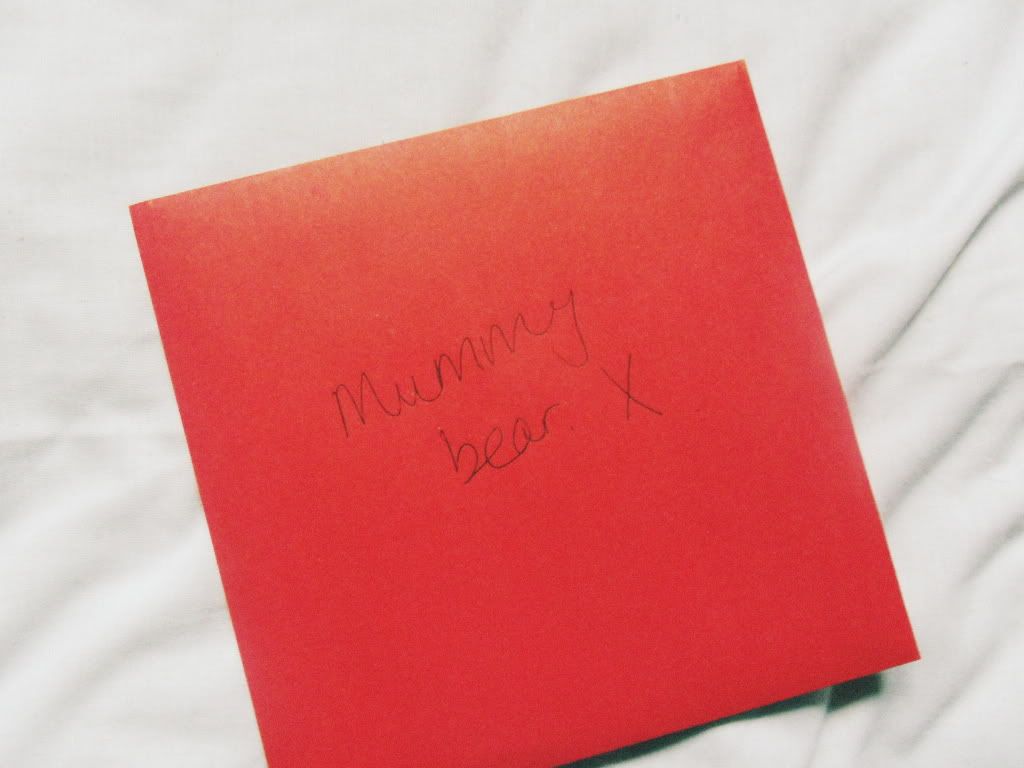 Mummy
bear. X